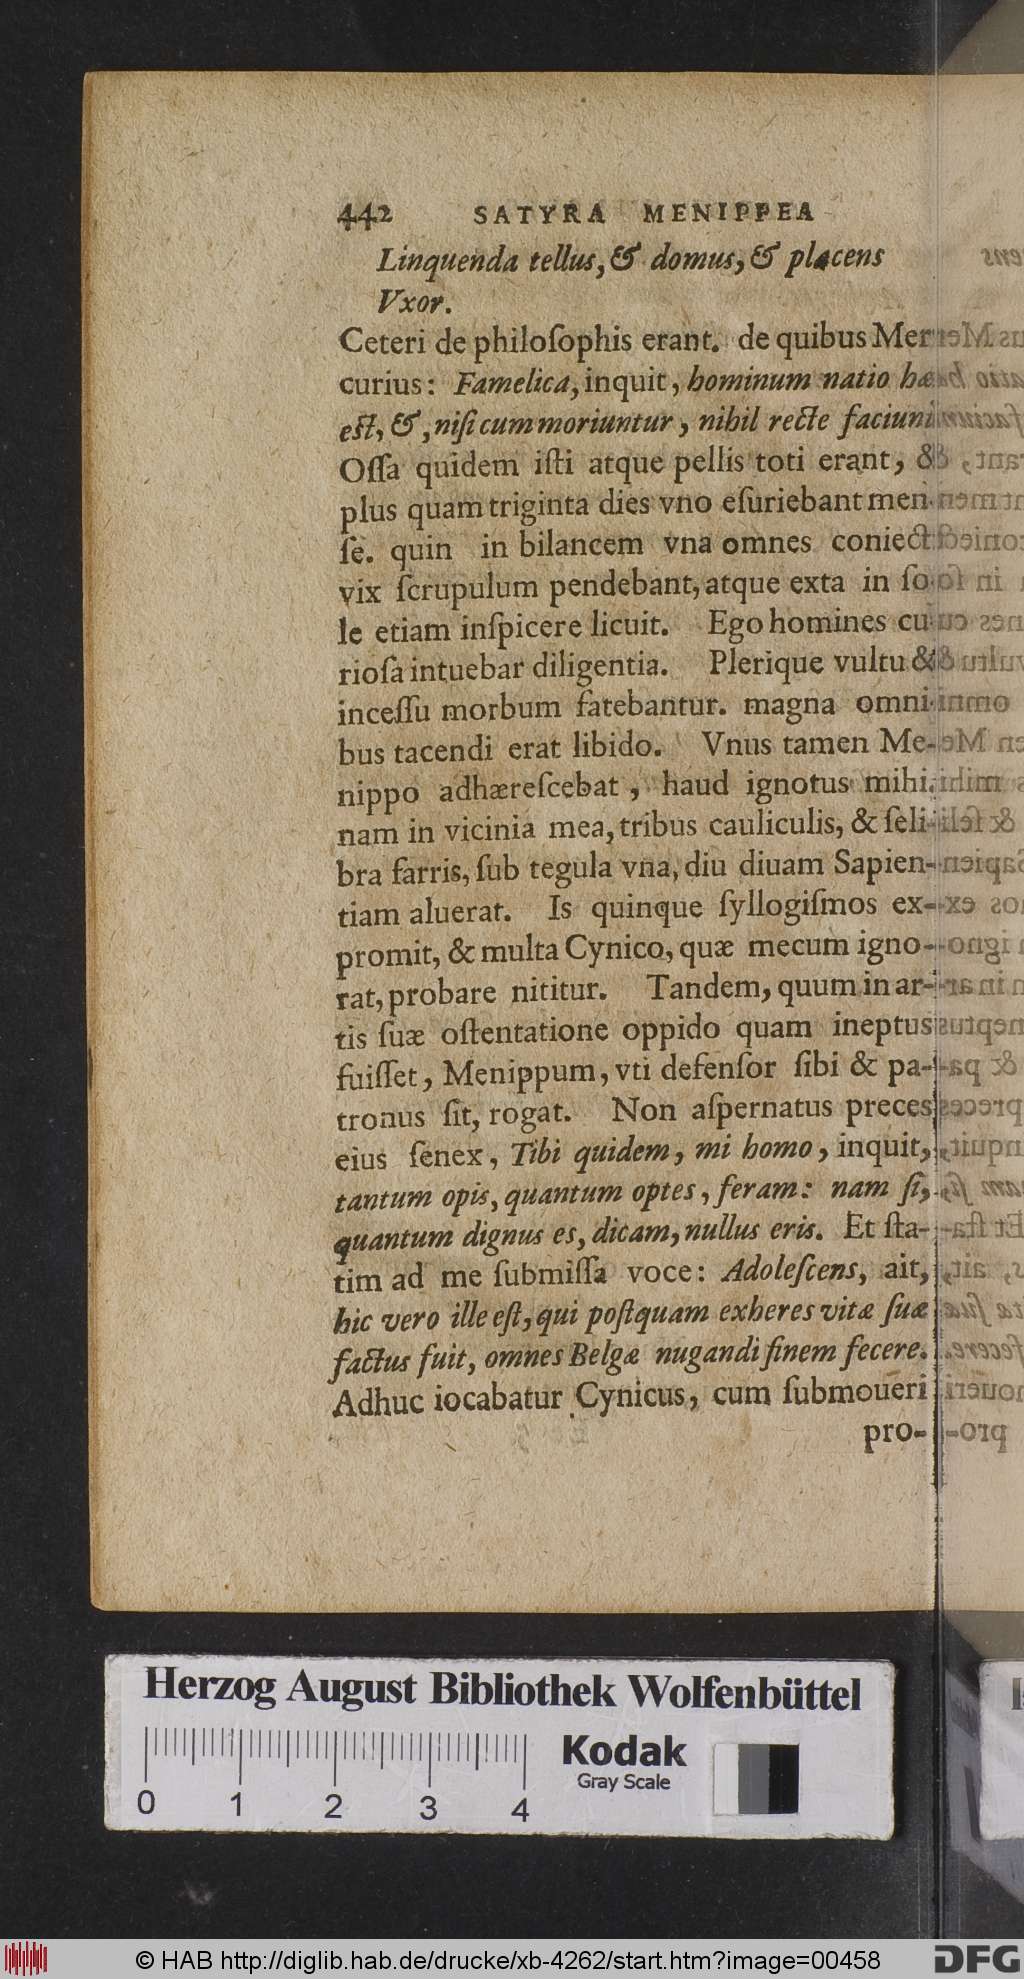 442 SATYRA MENIPPEA
Linquenda tellus, & domus, & placens
Vxor.
Ceteri de philoſophis erant. de quibus Mer
curius: Famelica, inquit, hominum natio hæ
eſt, &, niſi cum moriuntur, nihil recte faciunt
Oſſa quidem iſti atque pellis toti erant, &
plus quam triginta dies vno eſuriebant men-
ſe. quin in bilancem vna omnes coniecti
vix ſcrupulum pendebant, atque exta in ſo-
le etiam inſpicere licuit. Ego homines cu-
rioſa intuebar diligentia. Plerique vultu &
inceſſu morbum fatebantur. magna omni-
bus tacendi erat libido. Vnus tamen Me-
nippo adhæreſcebat, haud ignotus mihi.
nam in vicinia mea, tribus cauliculis, & ſeli-
bra farris, ſub tegula vna, diu diuam Sapien-
tiam aluerat. Is quinque ſyllogiſmos ex-
promit, & multa Cynico, quæ mecum igno-
rat, probare nititur. Tandem, quum in ar-
tis ſuæ oſtentatione oppido quam ineptus
fuiſſet, Menippum, vti defenſor ſibi & pa-
tronus ſit, rogat. Non aſpernatus preces
eius ſenex, Tibi quidem, mi homo, inquit,
tantum opis, quantum optes, feram: nam ſi,
quantum dignus es, dicam, nullus eris. Et ſta-
tim ad me ſubmiſſa voce: Adoleſcens, ait,
hic vero ille eſt, qui poſtquam exheres vitæ ſuæ
factus fuit, omnes Belgæ nugandi finem fecere.
Adhuc iocabatur Cynicus, cum ſubmoueri
pro-
Herzog August Bibliothek Wolfenbüttel
Kodak
Gray Scale
0 1 2 3 4
© HAB http://diglib.hab.de/drucke/xb-4262/start.htm?image=00458
DFG